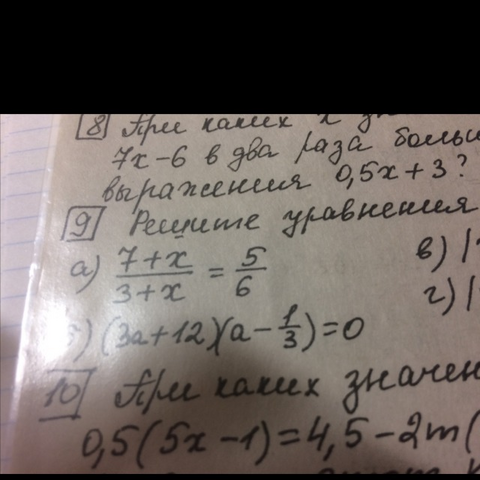 8 При каких x
7x-6 в два раза
выражения 0,5x+3?
9 Решите уравнения
а) (7+x)/(3+x) = 5/6
в) |
г) |
) (3a+12)(a-1/3)=0
10 При каких
0,5(5x-1)=4,5-2m(